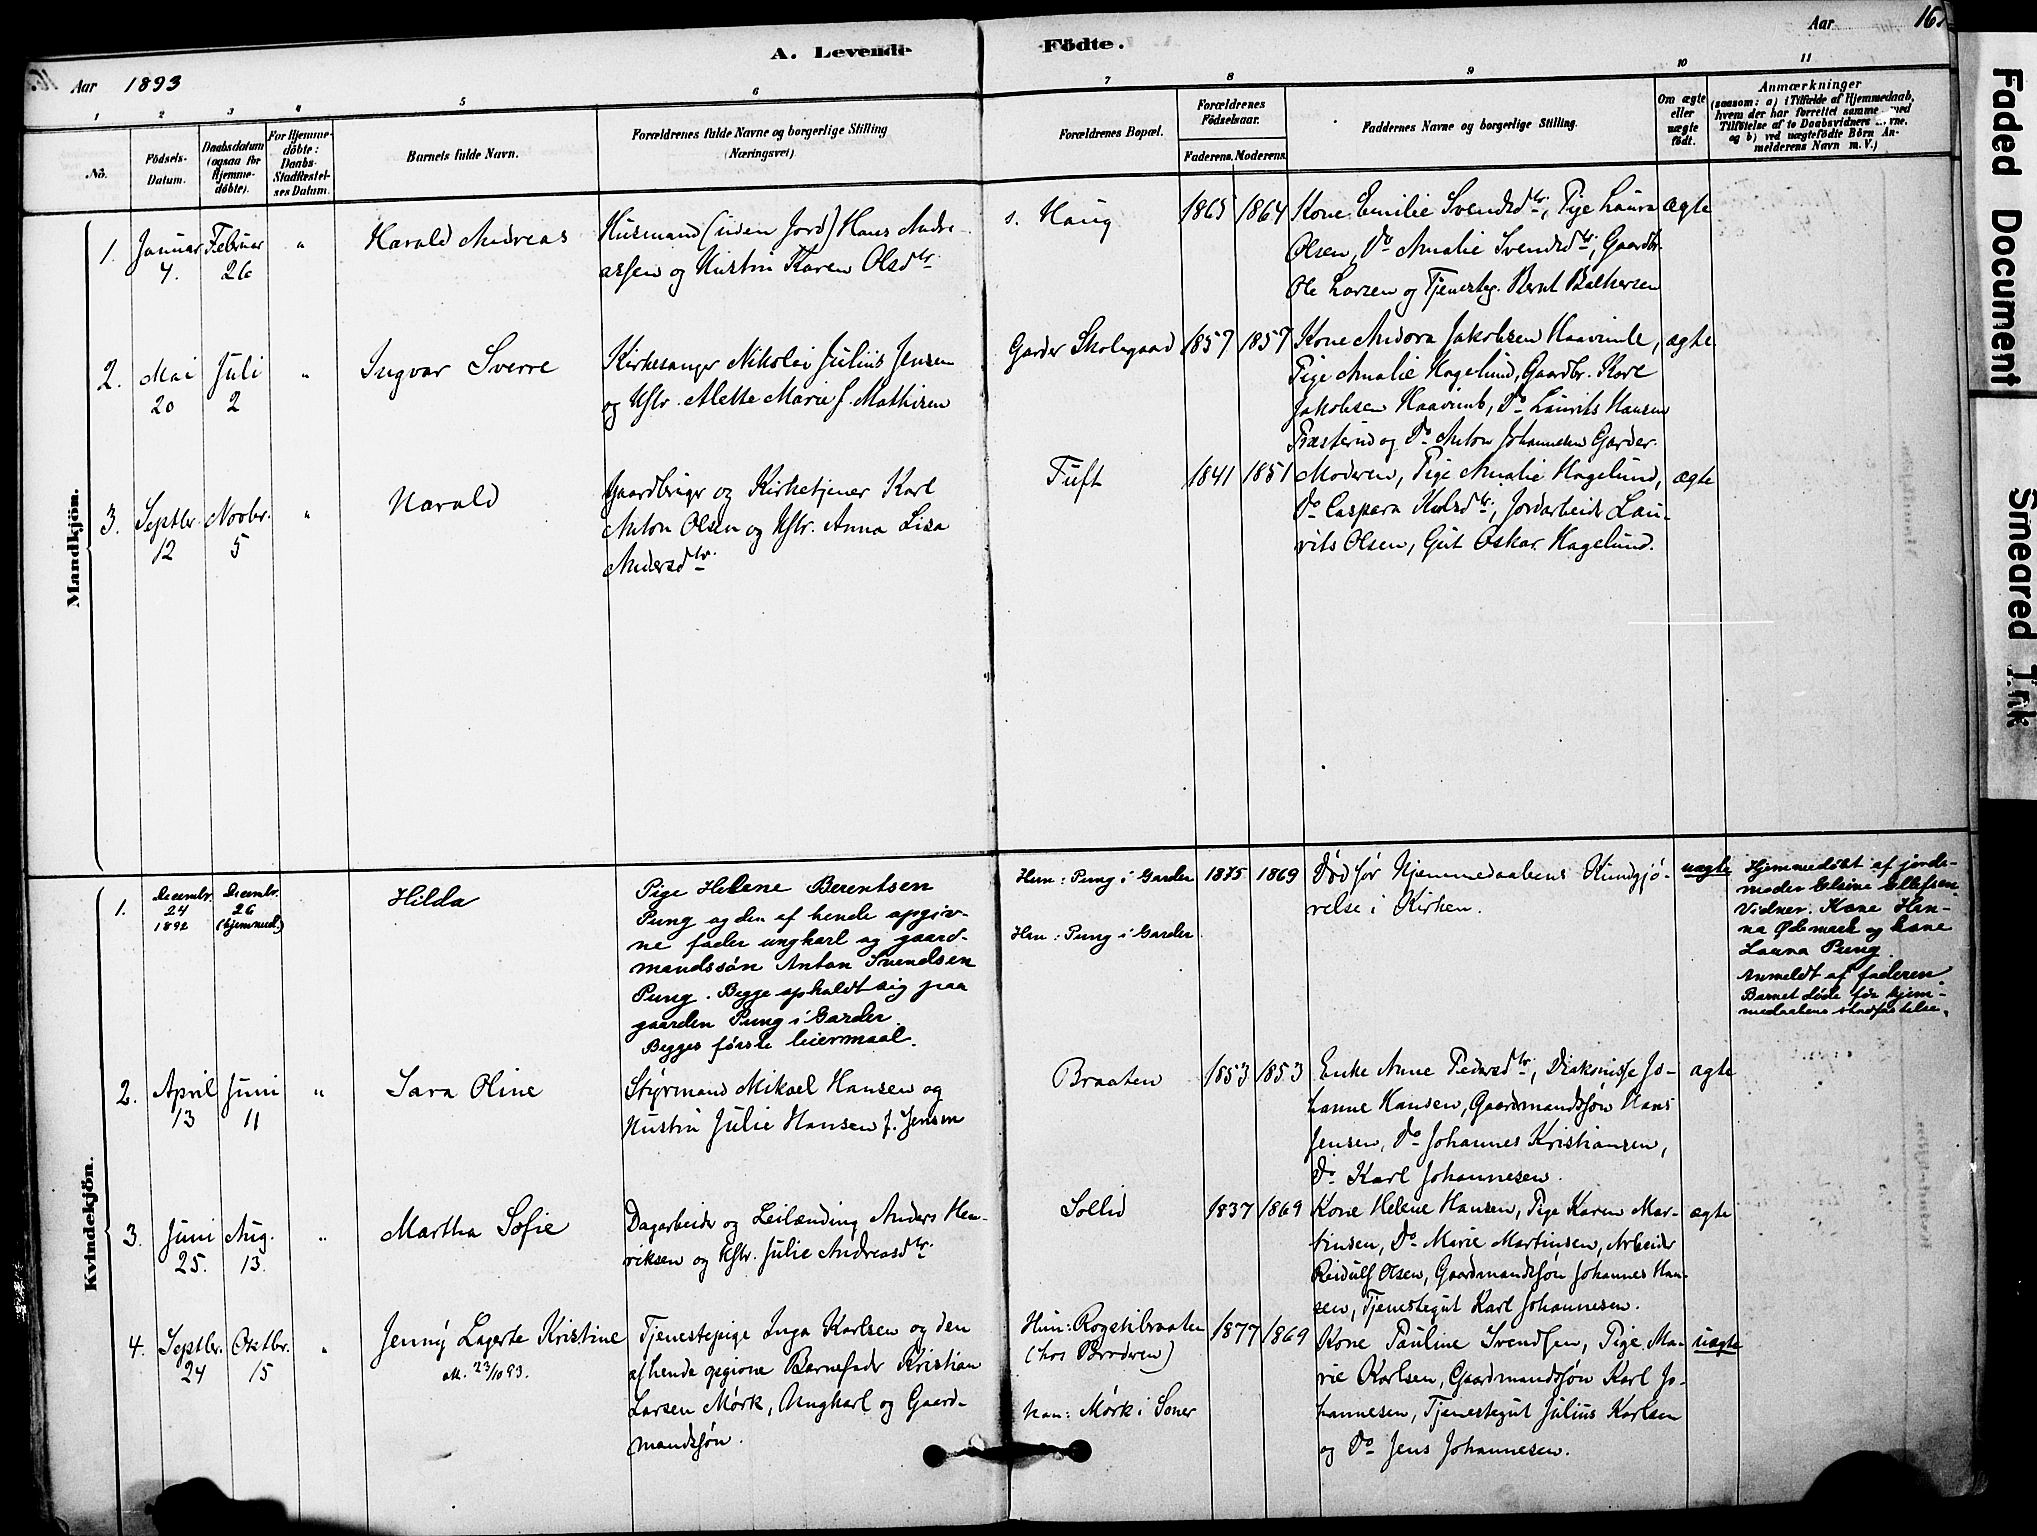 A. Levende Födte.
Aar 16
Aar 1893
1 2 3 4 5 6 7 8 9 10 11
No.
Födsels-Datum.
Daabsdatum (ogsaa for Hjemme-döbte).
For Hjemme-döbte: Daabs-Stadfæstel-ses Datum.
Barnets fulde Navn.
Forældrenes fulde Navne og borgerlige Stilling
(Næringsvei)
Forældrenes Bopæl.
Forældrenes Födselsaar.
Faderens. Moderens.
Faddernes Navne og borgerlige Stilling.
Om ægte eller uægte födt.
Anmærkninger
(saasom: a) i Tilfælde af Hjemmedaab,
hvem der har forrettet samme med
Tilföielse af to Daabsvidners Navne.
og b) ved uægtefödte Börn An-
melderens Navn m. V.)
Mandkjön.
1. Januar 4. Februar 26 " Harald Andreas
Husmand (uden Jord) Hans Andre-
assen og Hustru Karen Olsdtr.
s. Haug 1865 1864
Kone Emilie Svendsdtr, Pige Laura
Olsen, Do Amalie Svendsdtr, Gaardbr.
Ole Larsen og Tjenesteg. Bernt Baltersen
ægte
2. Mai 20 Juli 2 " Ingvar Sverre
Kirkesanger Nikolai Julius Jensen
og Hstr. Alette Marie f. Mathisen
Garder Skolegaard 1857 1857
Kone Andora Jakobsen Haavimb,
Pige Amalie Hagelund, Gaardbr. Kare
Jakobsen Haavimb, Do Laurits Hansen
Præsterud og Do Anton Johannesen Garder.
ægte
3. Septbr. 12 Novbr. 5 " Harald
Gaardbruger og Kirketjener Karl
Anton Olsen og Hstr. Anna Lisa
Andersdtr.
Tuft 1841 1851
Moderen, Pige Amalie Hagelund,
Do Caspara Karlsdtr, Jordarbeider Lau-
rits Olsen, Gut Oskar Hagelund.
ægte
Kvindekjön.
1. Decembr. 24 1892 Decembr. 26 (hjemmed.) Hilda
Pige Helene Berentsen
Pung og den af hende opgiv-
ne fader ungkarl og gaard-
mandssøn Anton Svendsen
Pung. Begge opholdt sig paa
gaarden Pung i Garder.
Begges første leiermaal.
Hun: Pung i Garder 1875 1869
Han: Pung i Garder
Død før Hjemmedaabens Kundgjø-
relse i Kirken.
uægte
Hjemmedøbt af jorde-
moder Elsine Ellefsen
Vidner. Kone Han-
na Ødemark og kone
Laura Pung.
Anmeldt af faderen
Barnet døde før hjem-
medaabens stadfæstelse.
2. April 13 Juni 11 " Sara Oline
Styrmand Mikael Hansen og
Hustru Julie Hansen f. Jensen
Braaten 1853 1853
Enke Anne Pedersdtr, Diakonisse Jo-
hanne Hansen, Gaardmandssøn Hans
Jensen, Do Johannes Kristiansen,
Do Karl Johannesen.
ægte
3. Juni 25. Aug. 13. " Martha Sofie
Dagarbeider og Leilænding Anders Hen-
riksen og Hstr. Julie Andreasdtr.
Sollid 1837 1869
Kone Helene Hansen, Pige Karen Mar-
tinsen, Do Marie Martinsen, Arbeider
Reidulf Olsen, Gaardmandssøn Johannes Han-
sen, Tjenestegut Karl Johannesen.
ægte
4. Septbr. 24 Oktbr. 15 " Jenny Lagerte Kristine
Att. 23/10 93.
Tjenestepige Inga Karlsen og den
af hende opgivne Barnefader Kristian
Larsen Mørk, Ungkarl og Gaard-
mandssøn.
Hun: Rogstibraaten 1877 1869
(hos Broderen)
Han: Mørk i Soner
Kone Pauline Svendsen, Pige Ma-
rie Karlsen, Gaardmandssøn Karl Jo-
hannesen, Tjenestegut Julius Karlsen
og Do Jens Johannesen.
uægte
Faded Document
Smeared Ink